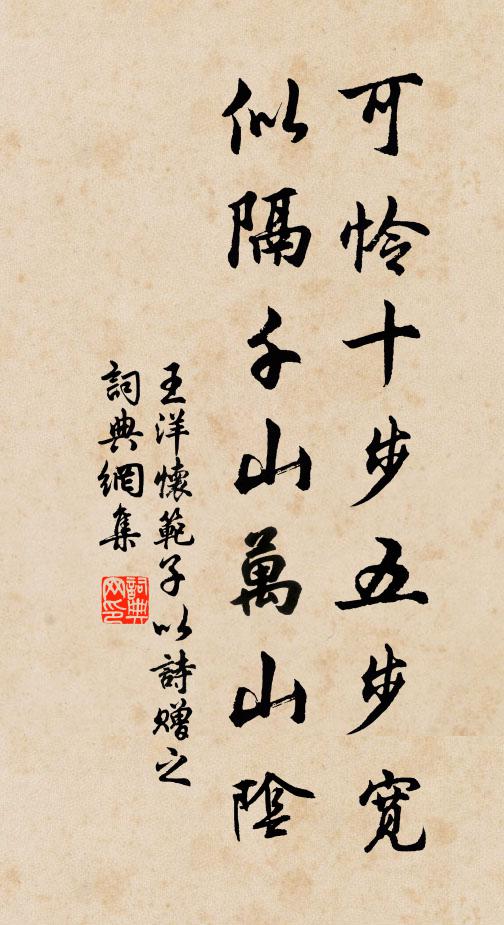 可怜十步五步寬
似隔千山萬山陰
王洋懷範子以詩贈之
詞典網集
詞典
网印